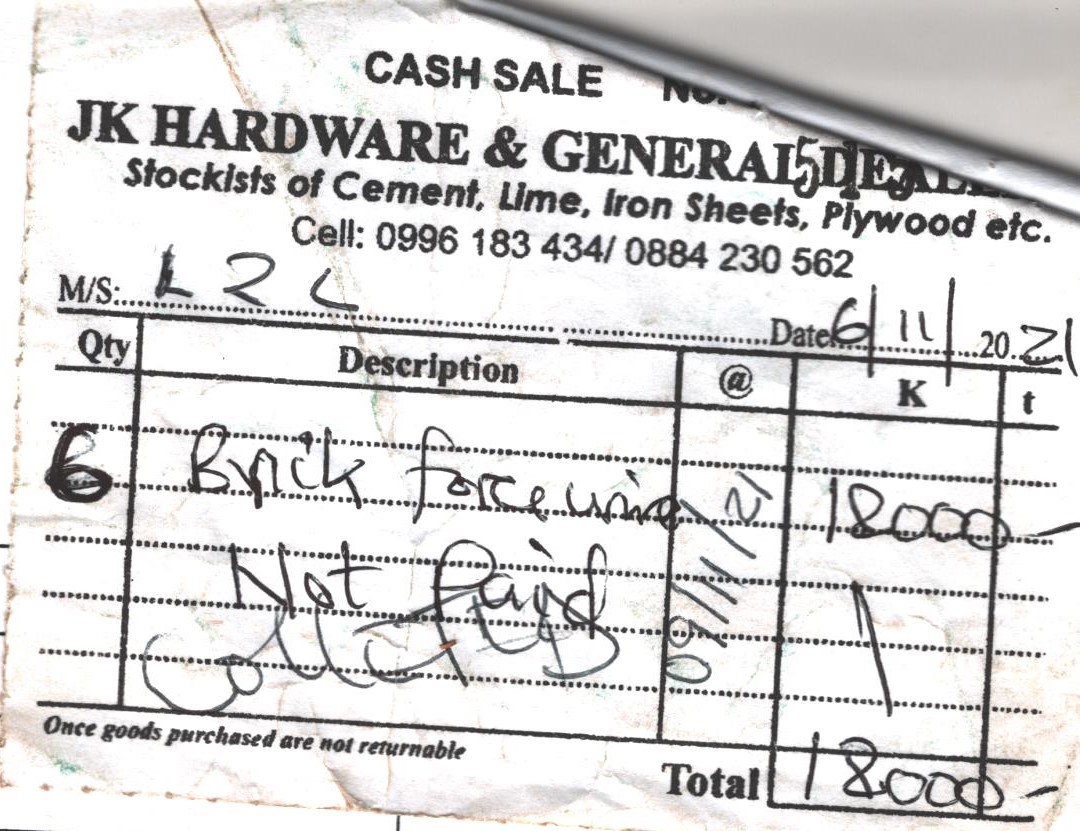 CASH SALE No.
JK HARDWARE & GENERAL DEALE
Stockists of Cement, Lime, Iron Sheets, Plywood etc.
Cell: 0996 183 434/ 0884 230 562
M/S: L2L Date 6/11/2021
Qty Description @ K t
6 Brick force wire 18000-
Not Paid
Collected 09/11/21
Once goods purchased are not returnable
Total 18000-